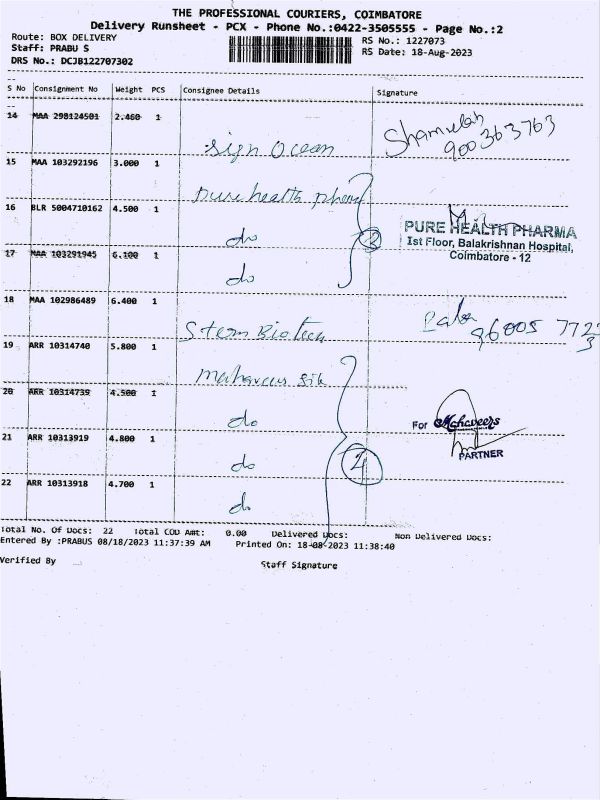 THE PROFESSIONAL COURIERS, COIMBATORE
Delivery Runsheet - PCX - Phone No.:0422-3505555 - Page No.:2
Route: BOX DELIVERY
RS No.: 1227073
Staff: PRABU S
RS Date: 18-Aug-2023
DRS No.: DCJB122707302
S No Consignment No Weight PCS Consignee Details Signature
14 MAA 298124501 2.460 1
sign Ocean
Shamuelah
900363763
15 MAA 103292196 3.000 1
pure health
16 BLR 5004710162 4.500 1
do
PURE HEALTH PHARMA
Ist Floor, Balakrishnan Hospital,
Coimbatore - 12
17 MAA 103291945 6.100 1
do
18 MAA 102986489 6.400 1
Stem Biotech
96005 772
3
19 ARR 10314740 5.800 1
Mahaveer silk
20 ARR 10314739 4.500 1
do
For Mahaveers
PARTNER
21 ARR 10313919 4.800 1
do
22 ARR 10313918 4.700 1
do
Total No. Of Docs: 22 Total COD Amt: 0.00 Delivered Docs: Non Delivered Docs:
Entered By :PRABUS 08/18/2023 11:37:39 AM Printed On: 18-08-2023 11:38:40
Verified By
Staff Signature